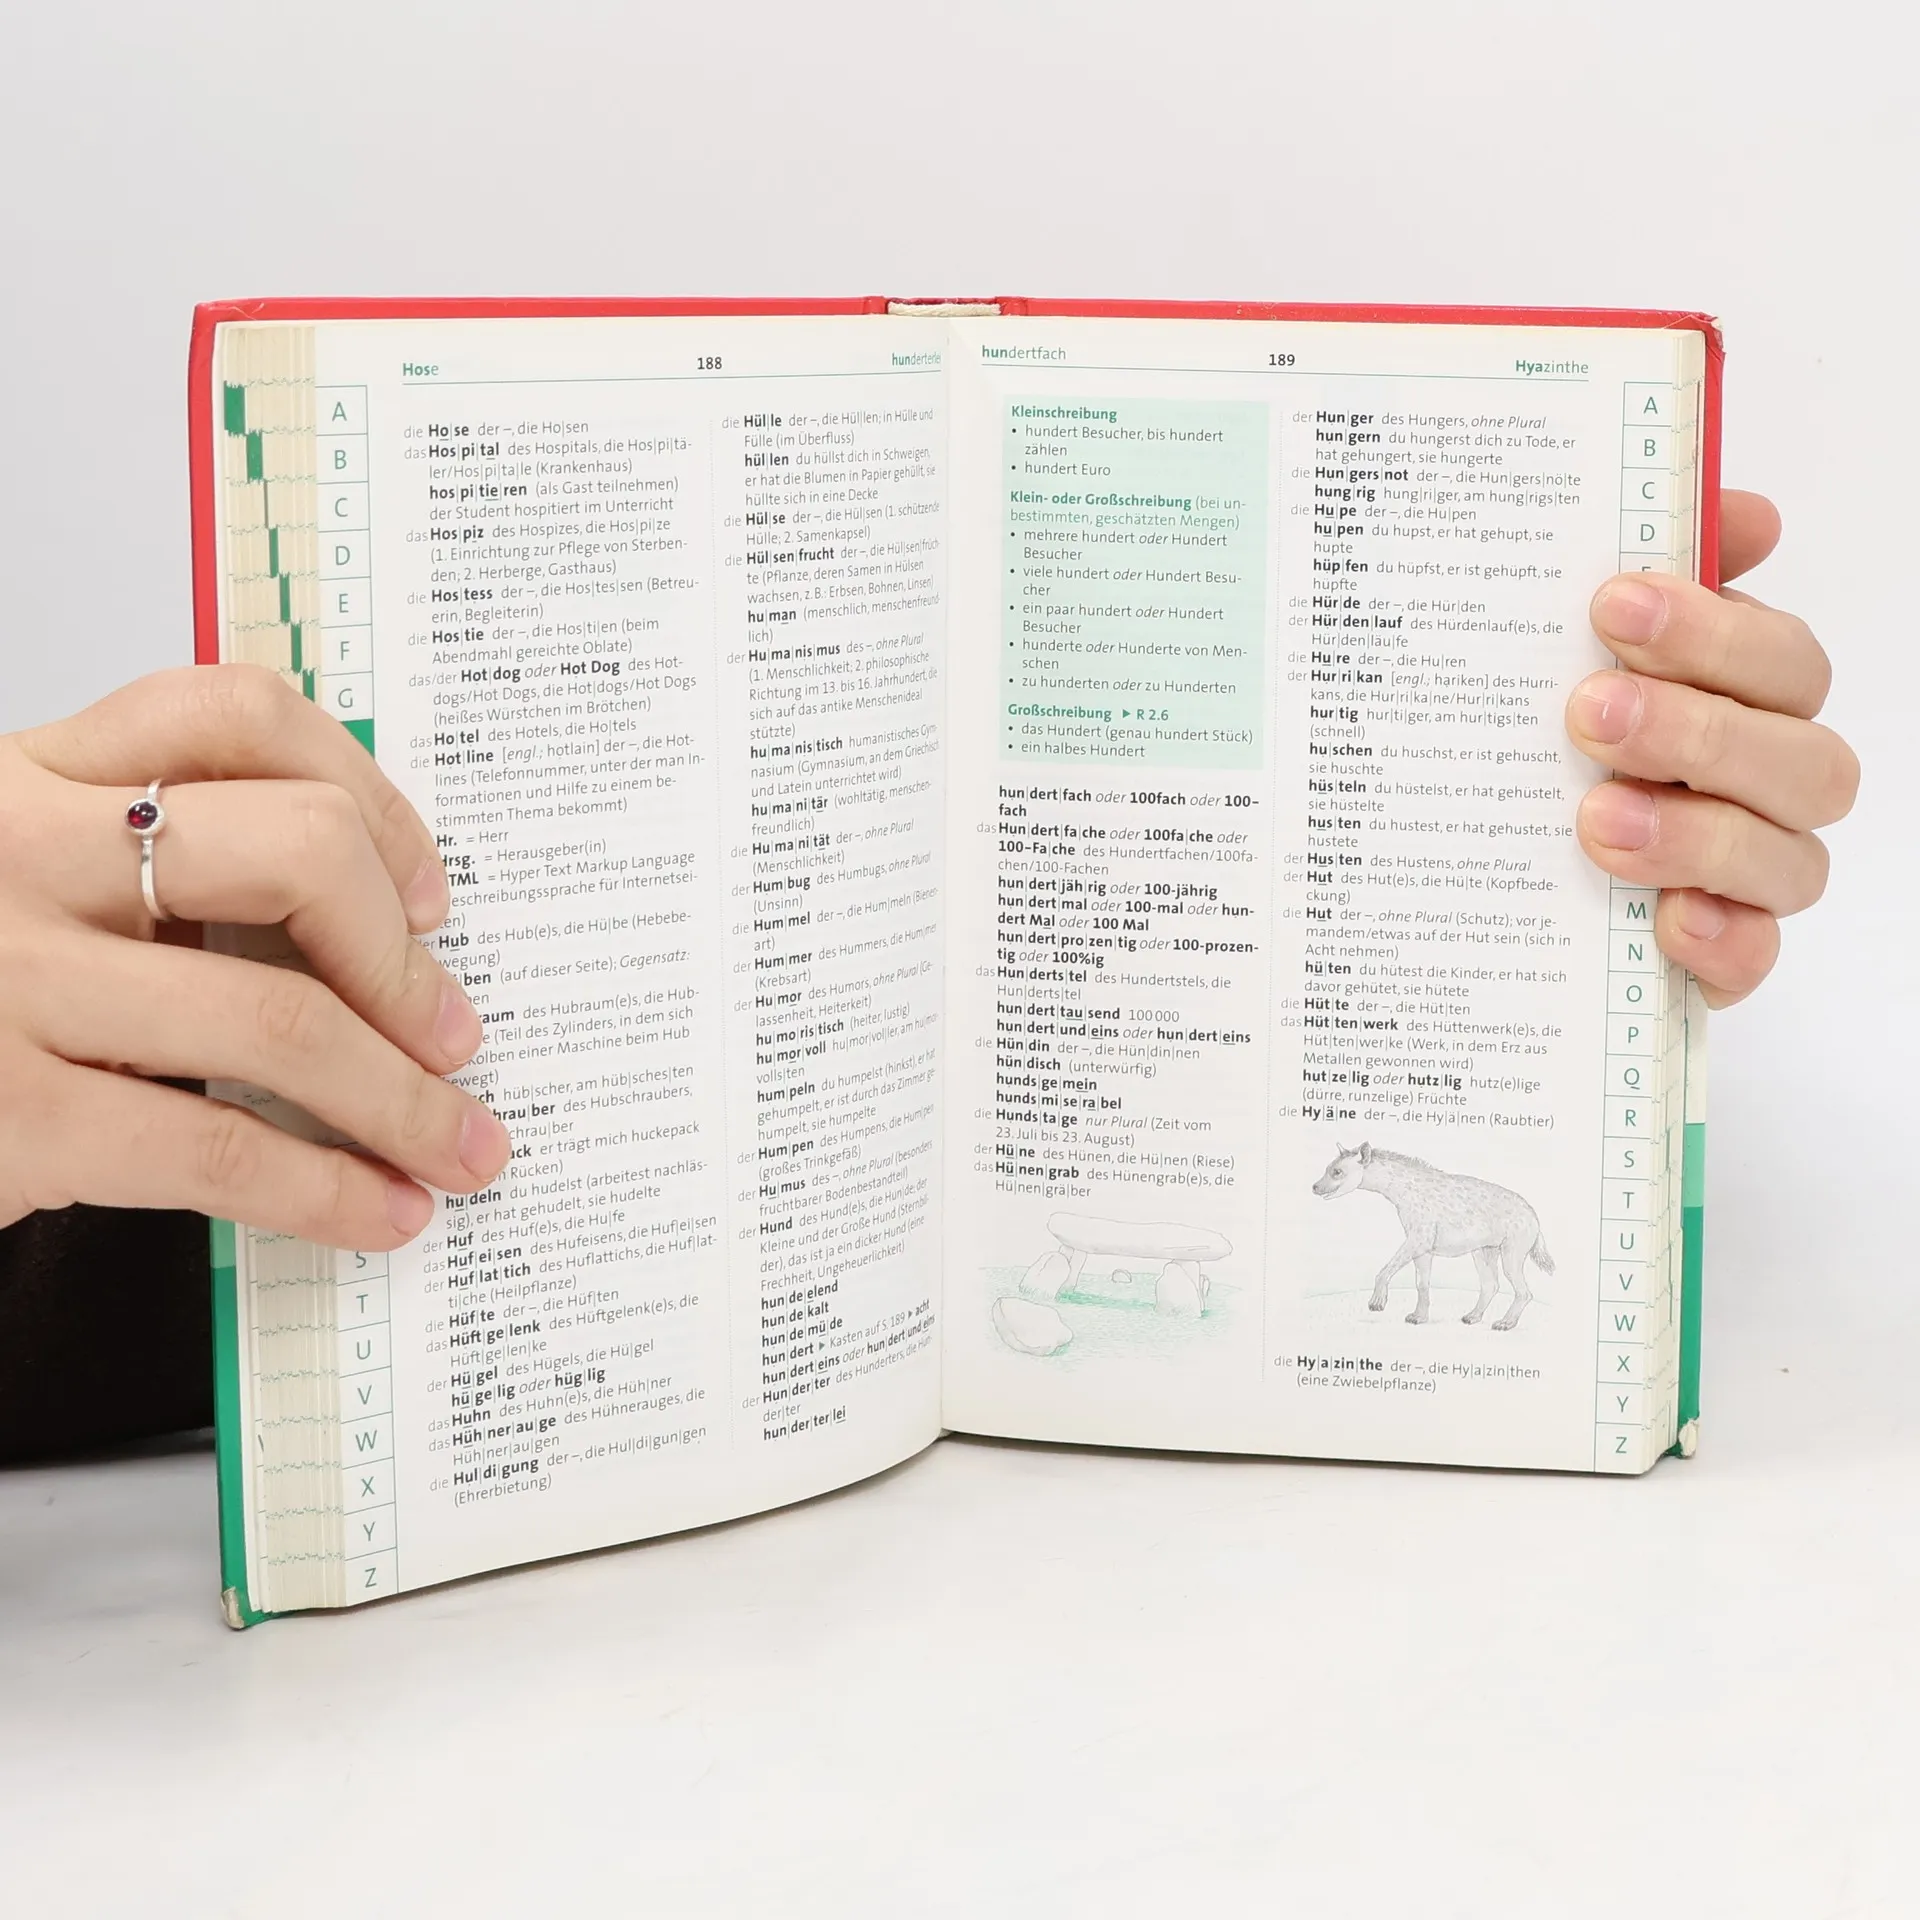 Hose 188 hunderterlei
A
B
C
D
E
F
G
S
T
U
V
W
X
Y
Z
die Ho|se der –, die Ho|sen
das Hos|pi|tal des Hospitals, die Hos|pi|tä-
ler/Hos|pi|ta|le (Krankenhaus)
hos|pi|tie|ren (als Gast teilnehmen)
der Student hospitiert im Unterricht
das Hos|piz des Hospizes, die Hos|pi|ze
(1. Einrichtung zur Pflege von Sterben-
den; 2. Herberge, Gasthaus)
die Hos|tess der –, die Hos|tes|sen (Betreu-
erin, Begleiterin)
die Hos|tie der –, die Hos|ti|en (beim
Abendmahl gereichte Oblate)
das/der Hot|dog oder Hot Dog des Hot-
dogs/Hot Dogs, die Hot|dogs/Hot Dogs
(heißes Würstchen im Brötchen)
das Ho|tel des Hotels, die Ho|tels
die Hot|line [engl.; hotlain] der –, die Hot-
lines (Telefonnummer, unter der man In-
formationen und Hilfe zu einem be-
stimmten Thema bekommt)
Hr. = Herr
Hrsg. = Herausgeber(in)
TML = Hyper Text Markup Language
eschreibungssprache für Internetsei-
ten)
der Hub des Hub(e)s, die Hü|be (Hebebe-
wegung)
ben (auf dieser Seite); Gegensatz:
en
raum des Hubraum(e)s, die Hub-
e (Teil des Zylinders, in dem sich
Kolben einer Maschine beim Hub
bewegt)
sch hüb|scher, am hüb|sches|ten
hrau|ber des Hubschraubers,
chrau|ber
ack er trägt mich huckepack
n Rücken)
hu|deln du hudelst (arbeitest nachläs-
sig), er hat gehudelt, sie hudelte
der Huf des Huf(e)s, die Hu|fe
das Huf|ei|sen des Hufeisens, die Huf|ei|sen
der Huf|lat|tich des Huflattichs, die Huf|lat-
ti|che (Heilpflanze)
die Hüf|te der –, die Hüf|ten
das Hüft|ge|lenk des Hüftgelenk(e)s, die
Hüft|ge|len|ke
der Hü|gel des Hügels, die Hü|gel
hü|ge|lig oder hüg|lig
das Huhn des Huhn(e)s, die Hüh|ner
das Hüh|ner|au|ge des Hühnerauges, die
Hüh|ner|au|gen
die Hul|di|gung der –, die Hul|di|gun|gen
(Ehrerbietung)
die Hül|le der –, die Hül|len; in Hülle und
Fülle (im Überfluss)
hül|len du hüllst dich in Schweigen,
er hat die Blumen in Papier gehüllt, sie
hüllte sich in eine Decke
die Hül|se der –, die Hül|sen (1. schützende
Hülle; 2. Samenkapsel)
die Hül|sen|frucht der –, die Hül|sen|früch-
te (Pflanze, deren Samen in Hülsen
wachsen, z. B.: Erbsen, Bohnen, Linsen)
hu|man (menschlich, menschenfreund-
lich)
der Hu|ma|nis|mus des –, ohne Plural
(1. Menschlichkeit; 2. philosophische
Richtung im 13. bis 16. Jahrhundert, die
sich auf das antike Menschenideal
stützte)
hu|ma|nis|tisch humanistisches Gym-
nasium (Gymnasium, an dem Griechisch
und Latein unterrichtet wird)
hu|ma|ni|tär (wohltätig, menschen-
freundlich)
die Hu|ma|ni|tät der –, ohne Plural
(Menschlichkeit)
der Hum|bug des Humbugs, ohne Plural
(Unsinn)
die Hum|mel der –, die Hum|meln (Bienen-
art)
der Hum|mer des Hummers, die Hum|mer
(Krebsart)
der Hu|mor des Humors, ohne Plural (Ge-
lassenheit, Heiterkeit)
hu|mo|ris|tisch (heiter, lustig)
hu|mor|voll hu|mor|vol|ler, am hu|mor-
volls|ten
hum|peln du humpelst (hinkst), er hat
gehumpelt, er ist durch das Zimmer ge-
humpelt, sie humpelte
der Hum|pen des Humpens, die Hum|pen
(großes Trinkgefäß)
der Hu|mus des –, ohne Plural (besonders
fruchtbarer Bodenbestandteil)
der Hund des Hund(e)s, die Hun|de; der
Kleine und der Große Hund (Sternbil-
der), das ist ja ein dicker Hund (eine
Frechheit, Ungeheuerlichkeit)
hun|de|elend
hun|de|kalt
hun|de|mü|de
hun|dert ▶ Kasten auf S. 189 ▶ acht
hun|dert|eins oder hun|dert|und|eins
der Hun|der|ter des Hunderters, die Hun-
der|ter
hun|der|ter|lei
hundertfach 189 Hyazinthe
Kleinschreibung
• hundert Besucher, bis hundert
zählen
• hundert Euro
Klein- oder Großschreibung (bei un-
bestimmten, geschätzten Mengen)
• mehrere hundert oder Hundert
Besucher
• viele hundert oder Hundert Besu-
cher
• ein paar hundert oder Hundert
Besucher
• hunderte oder Hunderte von Men-
schen
• zu hunderten oder zu Hunderten
Großschreibung ▶ R 2.6
• das Hundert (genau hundert Stück)
• ein halbes Hundert
hun|dert|fach oder 100fach oder 100-
fach
das Hun|dert|fa|che oder 100fa|che oder
100-Fa|che des Hundertfachen/100fa-
chen/100-Fachen
hun|dert|jäh|rig oder 100-jährig
hun|dert|mal oder 100-mal oder hun-
dert Mal oder 100 Mal
hun|dert|pro|zen|tig oder 100-prozen-
tig oder 100%ig
das Hun|derts|tel des Hundertstels, die
Hun|derts|tel
hun|dert|tau|send 100 000
hun|dert|und|eins oder hun|dert|eins
die Hün|din der –, die Hün|din|nen
hün|disch (unterwürfig)
hunds|ge|mein
hunds|mi|se|ra|bel
die Hunds|ta|ge nur Plural (Zeit vom
23. Juli bis 23. August)
der Hü|ne des Hünen, die Hü|nen (Riese)
das Hü|nen|grab des Hünengrab(e)s, die
Hü|nen|grä|ber
der Hun|ger des Hungers, ohne Plural
hun|gern du hungerst dich zu Tode, er
hat gehungert, sie hungerte
die Hun|gers|not der –, die Hun|gers|nö|te
hung|rig hung|ri|ger, am hung|rigs|ten
die Hu|pe der –, die Hu|pen
hu|pen du hupst, er hat gehupt, sie
hupte
hüp|fen du hüpfst, er ist gehüpft, sie
hüpfte
die Hür|de der –, die Hür|den
der Hür|den|lauf des Hürdenlauf(e)s, die
Hür|den|läu|fe
die Hu|re der –, die Hu|ren
der Hur|ri|kan [engl.; hariken] des Hurri-
kans, die Hur|ri|ka|ne/Hur|ri|kans
hur|tig hur|ti|ger, am hur|tigs|ten
(schnell)
hu|schen du huschst, er ist gehuscht,
sie huschte
hüs|teln du hüstelst, er hat gehüstelt,
sie hüstelte
hus|ten du hustest, er hat gehustet, sie
hustete
der Hus|ten des Hustens, ohne Plural
der Hut des Hut(e)s, die Hü|te (Kopfbede-
ckung)
die Hut der –, ohne Plural (Schutz); vor je-
mandem/etwas auf der Hut sein (sich in
Acht nehmen)
hü|ten du hütest die Kinder, er hat sich
davor gehütet, sie hütete
die Hüt|te der –, die Hüt|ten
das Hüt|ten|werk des Hüttenwerk(e)s, die
Hüt|ten|wer|ke (Werk, in dem Erz aus
Metallen gewonnen wird)
hut|ze|lig oder hutz|lig hutz(e)lige
(dürre, runzelige) Früchte
die Hy|ä|ne der –, die Hy|ä|nen (Raubtier)
die Hy|a|zin|the der –, die Hy|a|zin|then
(eine Zwiebelpflanze)
A
B
C
D
M
N
O
P
Q
R
S
T
U
V
W
X
Y
Z